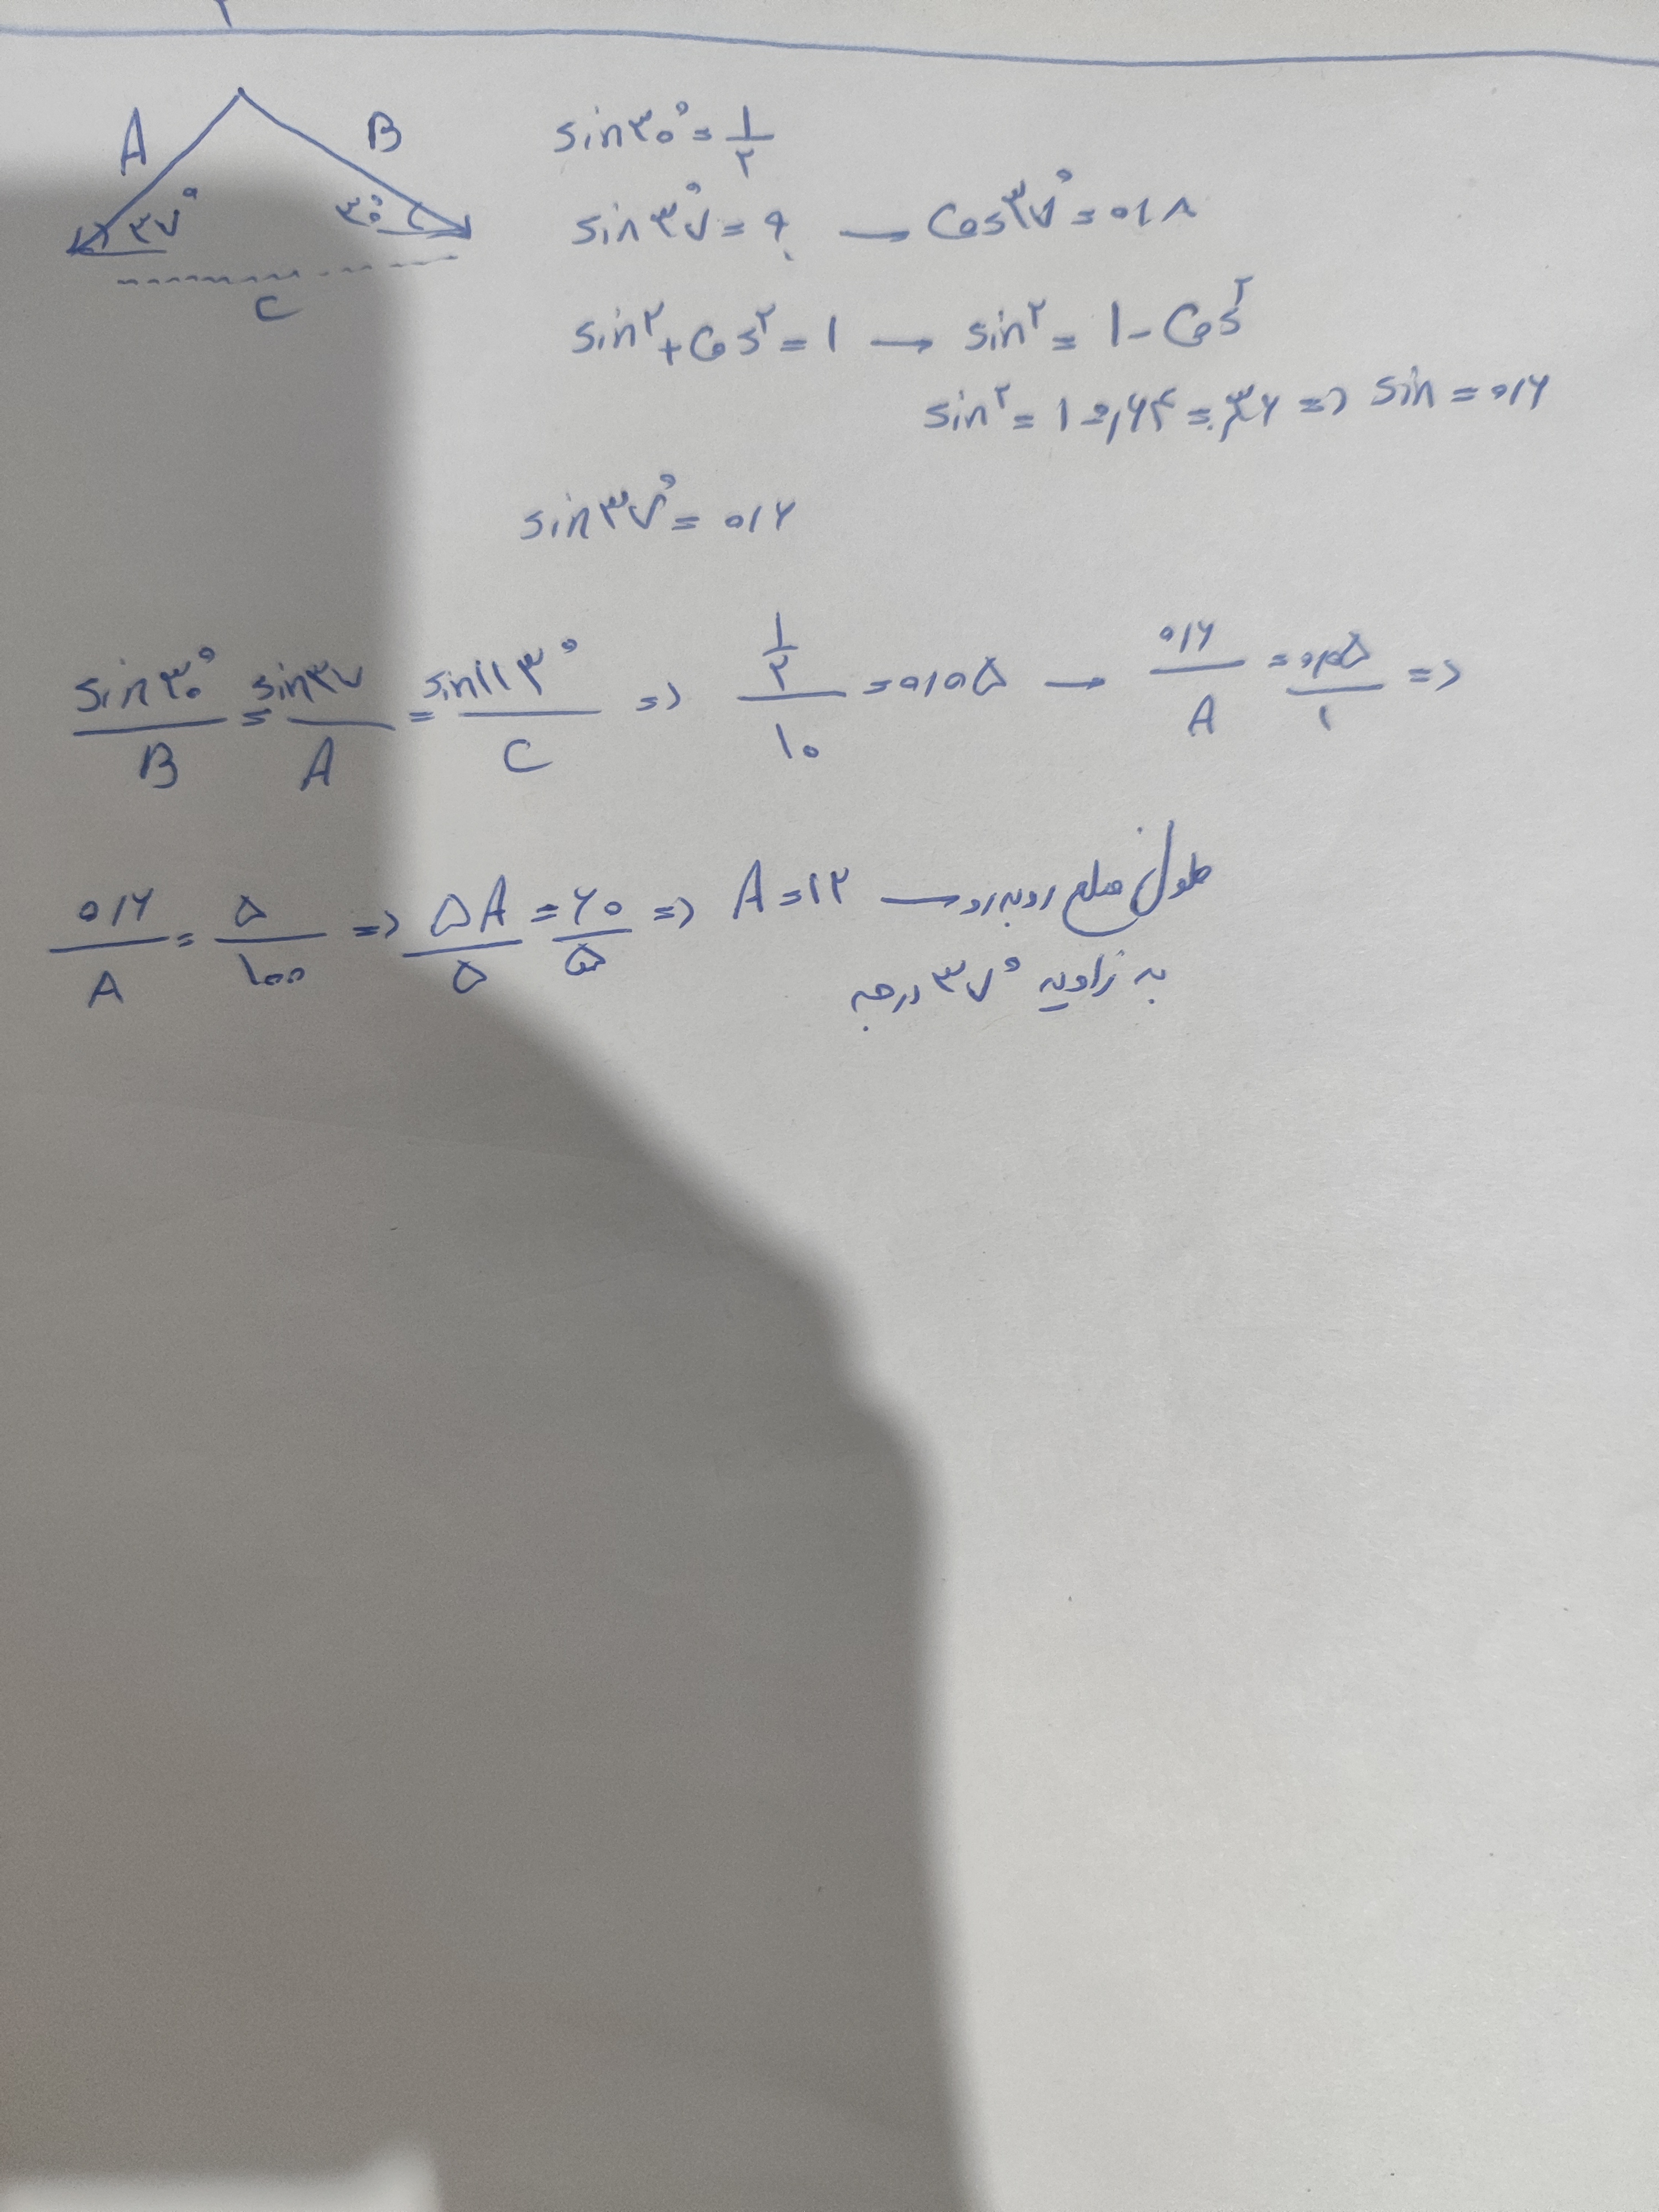 A B
۳۷° ۳۰°
C
sin۳۰° = ۱/۲
sin۳۷° = ؟ → Cos۳۷° = ۰/۸
sin² + Cos² = ۱ → sin² = ۱ - Cos²
sin² = ۱ - ۰/۶۴ = ۰/۳۶ => sin = ۰/۶
sin۳۷° = ۰/۶
sin۳۰°/B = sin۳۷/A = sin۱۱۳°/C => (۱/۲)/۱۰ = ۰/۰۵ → ۰/۶/A = ۰/۰۵/۱ =>
۰/۶/A = ۵/۱۰۰ => ۵A/۵ = ۶۰/۵ => A = ۱۲ → طول ضلع روبه رو
به زاویه ۳۷° درجه